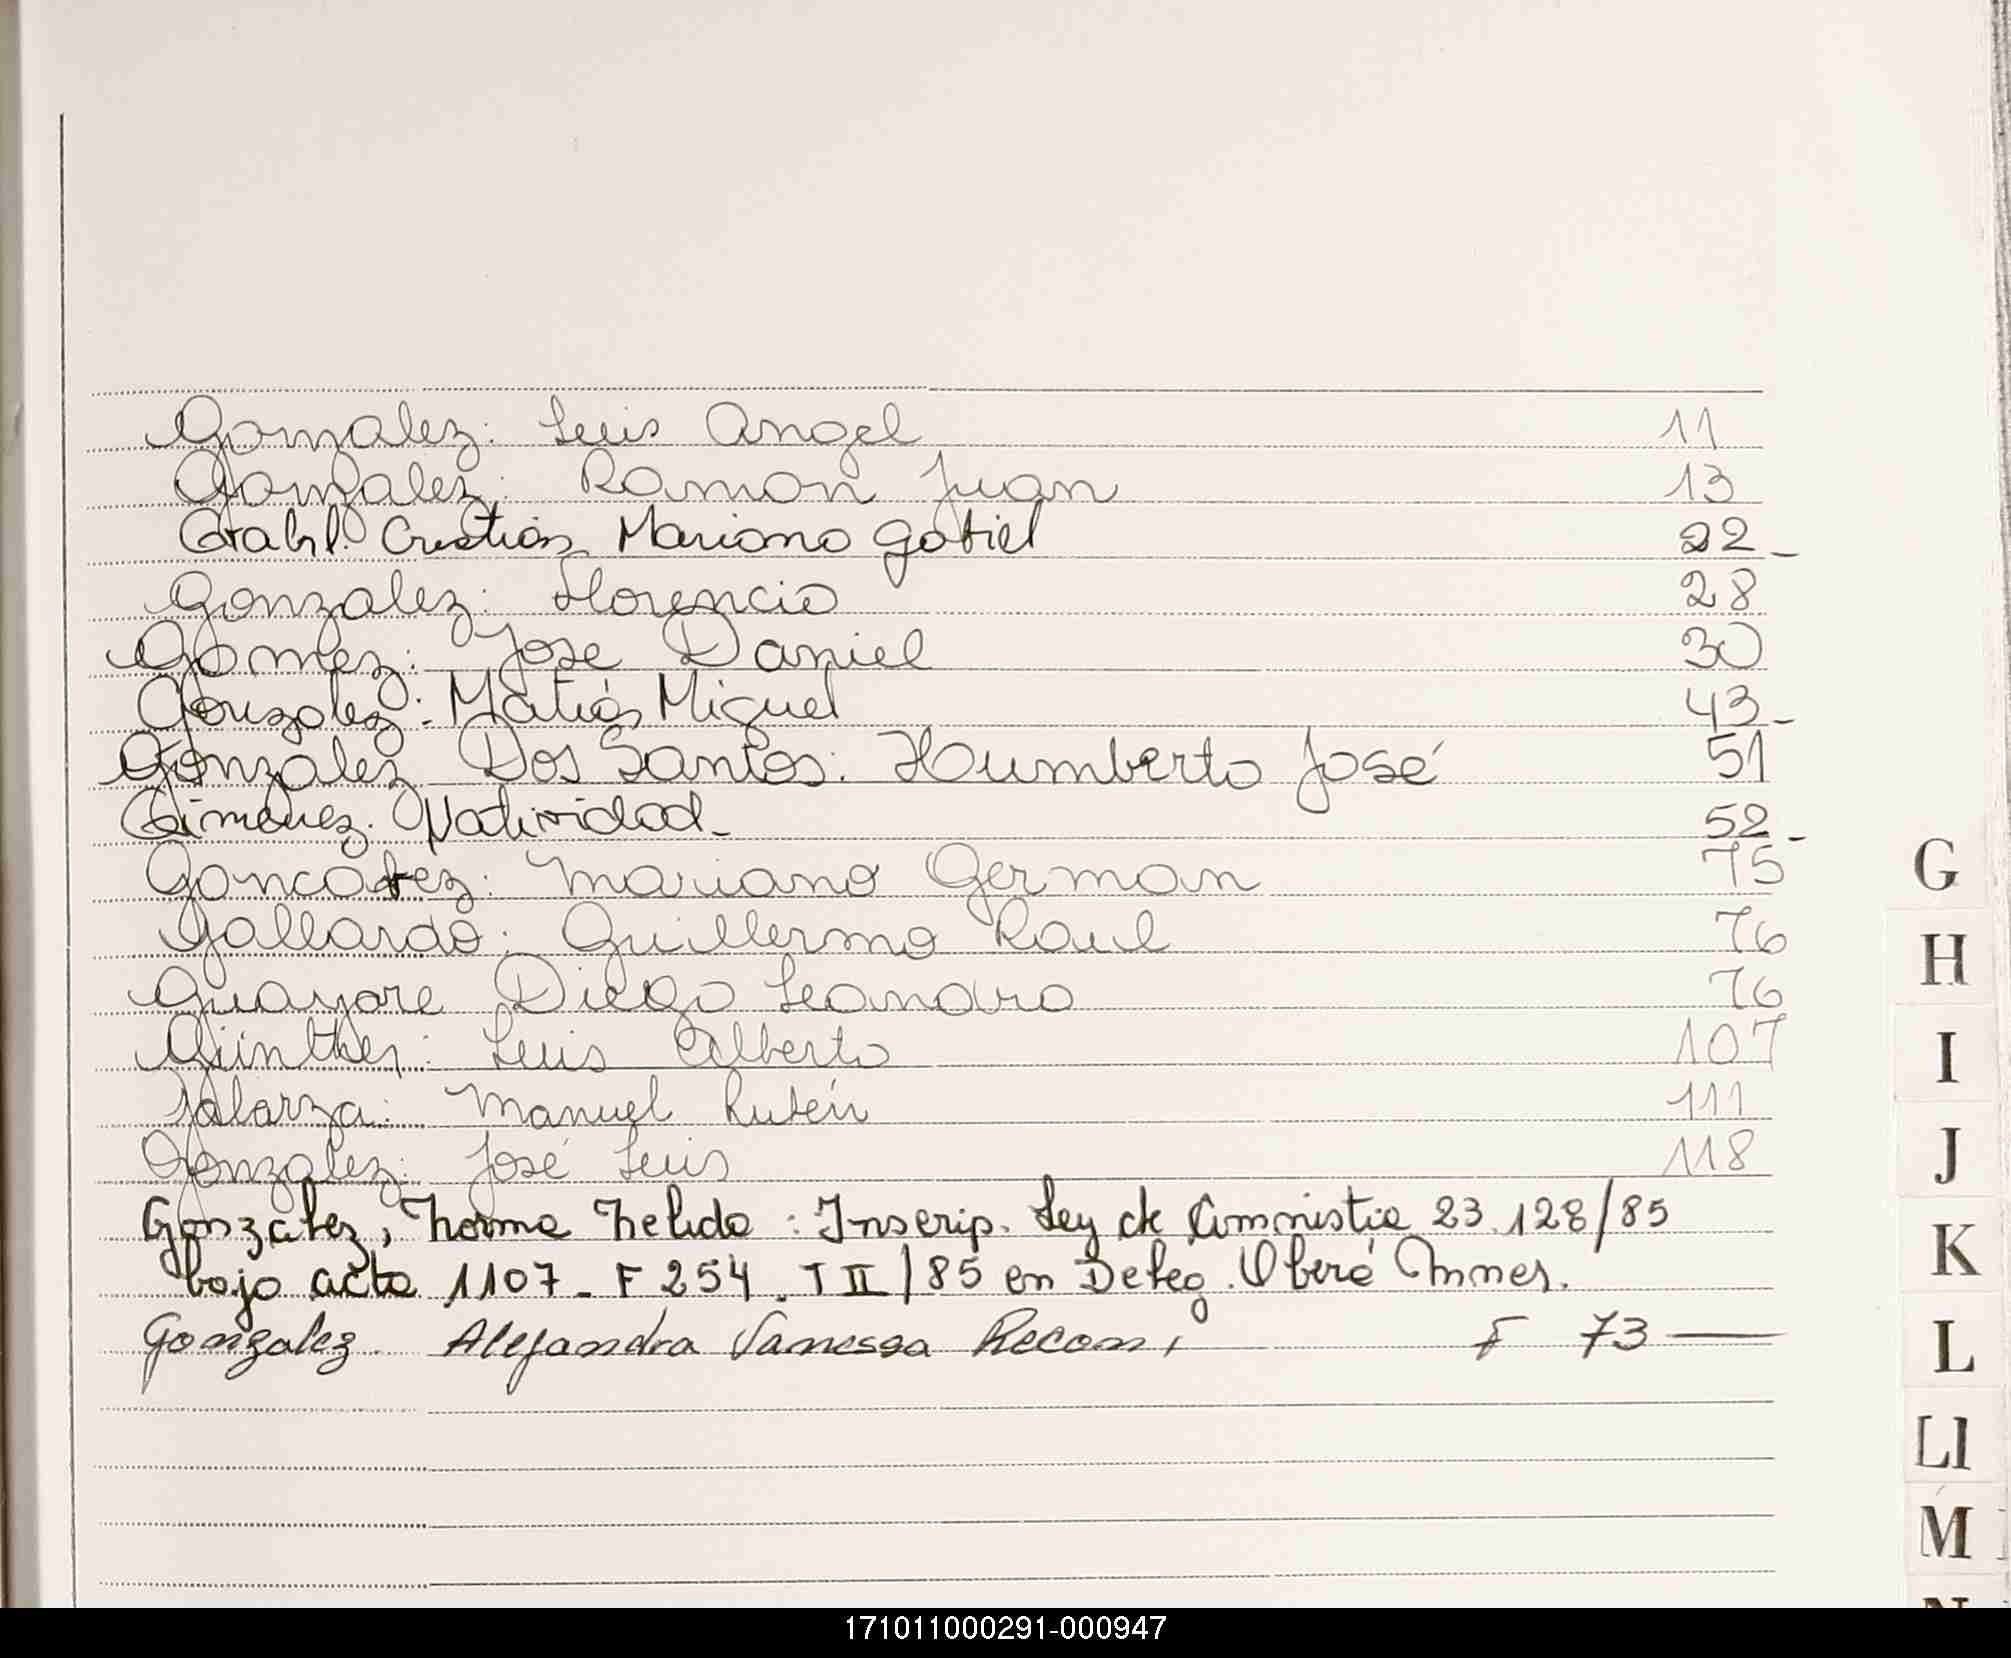 Gonzalez: Luis Angel 11
Gonzalez: Ramon Juan 13
Grahl: Cristian Mariano Gabriel 22_
Gonzalez: Florencio 28
Gomez: Jose Daniel 30
Gonzalez: Matias Miguel 43_
González Dos Santos: Humberto José 51
Gimenez. Natividad_ 52_
Goncalvez: Mariano German 75
Gallardo: Guillermo Raul 76
Guayare Diego Leandro 76
Günther: Luis Alberto 107
Galarza: Manuel Rubén 111
Gonzalez: José Luis 118
Gonzalez, Norma Nelida: Inscrip. Ley de Amnistia 23.128/85
bajo acta 1107_ F 254. T II/85 en Deleg. Oberá Mnes.
Gonzalez Alejandra Vanessa Recon, F 73
G
H
I
J
K
L
Ll
M
N
171011000291-000947